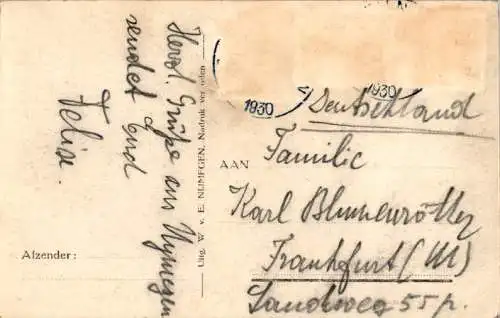 Herzl. Grüße aus Nymegen
sendet Euch
Felix.
Afzender:
Uitg. W. v. E. NIJMEGEN. Nadruk verboden
1930
1930
Deutschland
AAN
Familie
Karl Blumenröther
Frankfurt (M)
Sandweg 55 p.